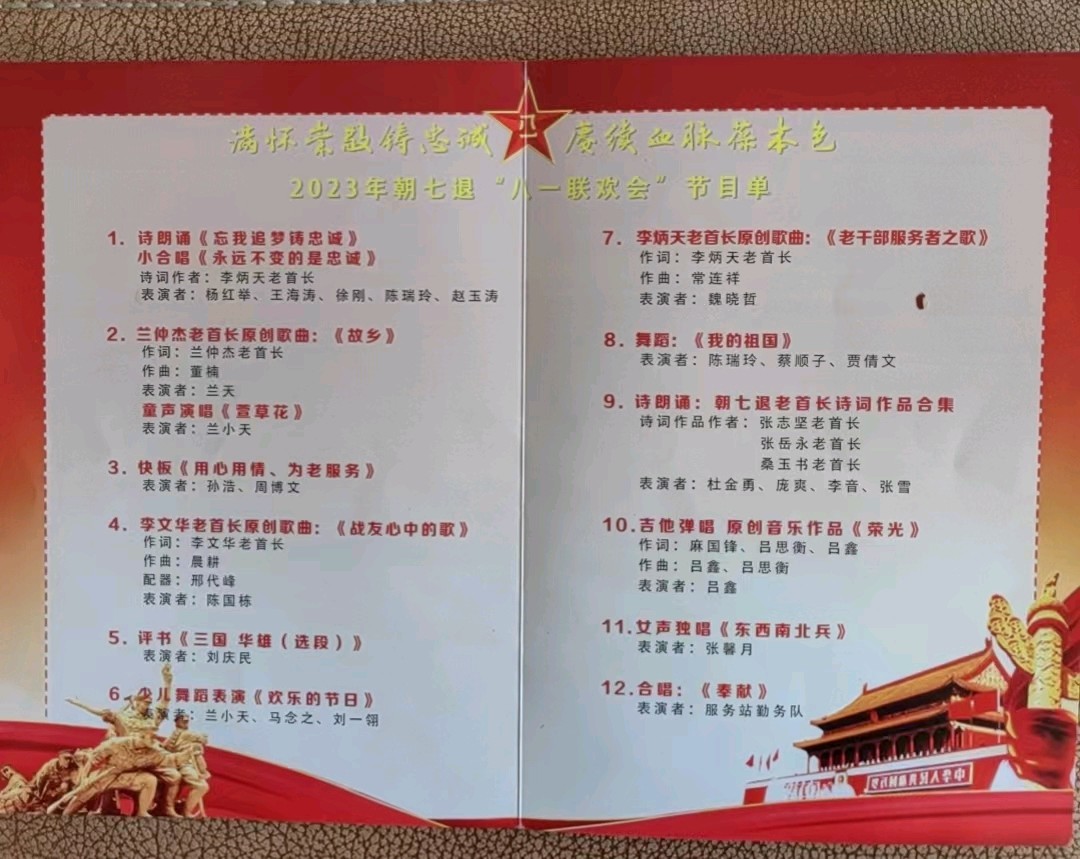 满怀崇敬铸忠诚 赓续血脉葆本色
八一
2023年朝七退“八一联欢会”节目单
1. 诗朗诵《忘我追梦铸忠诚》
小合唱《永远不变的是忠诚》
诗词作者：李炳天老首长
表演者：杨红举、王海涛、徐刚、陈瑞玲、赵玉涛
2. 兰仲杰老首长原创歌曲：《故乡》
作词：兰仲杰老首长
作曲：董楠
表演者：兰天
童声演唱《萱草花》
表演者：兰小天
3. 快板《用心用情、为老服务》
表演者：孙浩、周博文
4. 李文华老首长原创歌曲：《战友心中的歌》
作词：李文华老首长
作曲：晨耕
配器：邢代峰
表演者：陈国栋
5. 评书《三国 华雄（选段）》
表演者：刘庆民
6. 少儿舞蹈表演《欢乐的节日》
表演者：兰小天、马念之、刘一翎
7. 李炳天老首长原创歌曲：《老干部服务者之歌》
作词：李炳天老首长
作曲：常连祥
表演者：魏晓哲
8. 舞蹈：《我的祖国》
表演者：陈瑞玲、蔡顺子、贾倩文
9. 诗朗诵：朝七退老首长诗词作品合集
诗词作品作者：张志坚老首长
张岳永老首长
桑玉书老首长
表演者：杜金勇、庞爽、李音、张雪
10.吉他弹唱 原创音乐作品《荣光》
作词：麻国锋、吕思衡、吕鑫
作曲：吕鑫、吕思衡
表演者：吕鑫
11.女声独唱《东西南北兵》
表演者：张馨月
12.合唱：《奉献》
表演者：服务站勤务队